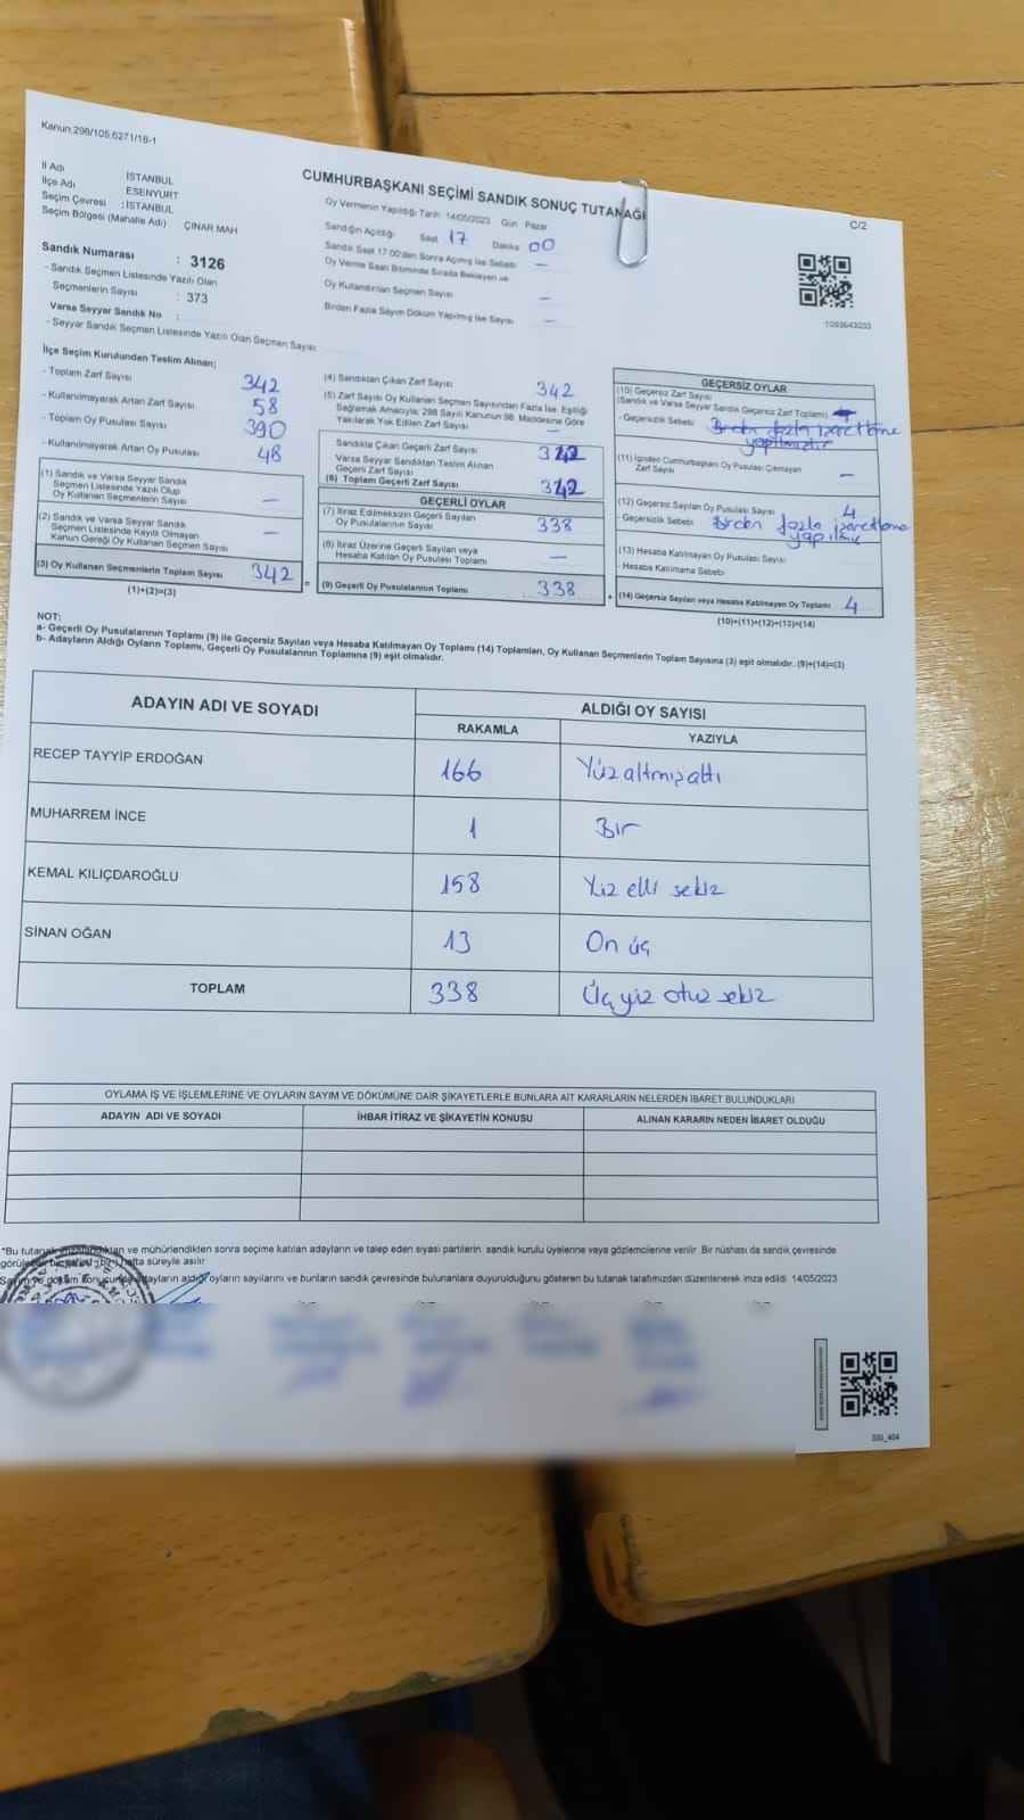 Kanun:298/105,6271/16-1
CUMHURBAŞKANI SEÇİMİ SANDIK SONUÇ TUTANAĞI
C/2
İl Adı İSTANBUL
İlçe Adı ESENYURT
Seçim Çevresi : İSTANBUL
Seçim Bölgesi (Mahalle Adı) ÇINAR MAH
Sandık Numarası : 3126
- Sandık Seçmen Listesinde Yazılı Olan
Seçmenlerin Sayısı : 373
Varsa Seyyar Sandık No :
- Seyyar Sandık Seçmen Listesinde Yazılı Olan Seçmen Sayısı
Oy Vermenin Yapıldığı Tarih: 14/05/2023 Gün Pazar
Sandığın Açıldığı Saat 17 Dakika 00
Sandık Saat 17.00'den Sonra Açılmış İse Sebebi —
Oy Verme Saati Bitiminde Sırada Bekleyen ve
Oy Kullandırılan Seçmen Sayısı —
Birden Fazla Sayım Döküm Yapılmış İse Sayısı —
İlçe Seçim Kurulundan Teslim Alınan;
- Toplam Zarf Sayısı 342
- Kullanılmayarak Artan Zarf Sayısı 58
- Toplam Oy Pusulası Sayısı 390
- Kullanılmayarak Artan Oy Pusulası 48
(1) Sandık ve Varsa Seyyar Sandık
Seçmen Listesinde Yazılı Olup
Oy Kullanan Seçmenlerin Sayısı —
(2) Sandık ve Varsa Seyyar Sandık
Seçmen Listesinde Kayıtlı Olmayan
Kanun Gereği Oy Kullanan Seçmen Sayısı —
(3) Oy Kullanan Seçmenlerin Toplam Sayısı 342 =
(1)+(2)=(3)
(4) Sandıktan Çıkan Zarf Sayısı 342
(5) Zarf Sayısı Oy Kullanan Seçmen Sayısından Fazla İse, Eşitliği
Sağlamak Amacıyla, 298 Sayılı Kanunun 98. Maddesine Göre
Yakılarak Yok Edilen Zarf Sayısı —
Sandıkta Çıkan Geçerli Zarf Sayısı 342
Varsa Seyyar Sandıktan Teslim Alınan
Geçerli Zarf Sayısı
(6) Toplam Geçerli Zarf Sayısı 342
GEÇERLİ OYLAR
(7) İtiraz Edilmeksizin Geçerli Sayılan
Oy Pusulalarının Sayısı 338
(8) İtiraz Üzerine Geçerli Sayılan veya
Hesaba Katılan Oy Pusulası Toplamı —
(9) Geçerli Oy Pusulalarının Toplamı 338 +
GEÇERSİZ OYLAR
(10) Geçersiz Zarf Sayısı
(Sandık ve Varsa Seyyar Sandık Geçersiz Zarf Toplamı)
- Geçersizlik Sebebi Birden fazla işaretleme
yapılmıştır
(11) İçinden Cumhurbaşkanı Oy Pusulası Çıkmayan
Zarf Sayısı —
(12) Geçersiz Sayılan Oy Pusulası Sayısı 4
- Geçersizlik Sebebi Birden fazla işaretleme
(13) Hesaba Katılmayan Oy Pusulası Sayısı
- Hesaba Katılmama Sebebi
(14) Geçersiz Sayılan veya Hesaba Katılmayan Oy Toplamı 4
(10)+(11)+(12)+(13)=(14)
NOT:
a- Geçerli Oy Pusulalarının Toplamı (9) ile Geçersiz Sayılan veya Hesaba Katılmayan Oy Toplamı (14) Toplamları, Oy Kullanan Seçmenlerin Toplam Sayısına (3) eşit olmalıdır. (9)+(14)=(3)
b- Adayların Aldığı Oyların Toplamı, Geçerli Oy Pusulalarının Toplamına (9) eşit olmalıdır.
ADAYIN ADI VE SOYADI ALDIĞI OY SAYISI
RAKAMLA YAZIYLA
RECEP TAYYİP ERDOĞAN 166 Yüz altmış altı
MUHARREM İNCE 1 Bir
KEMAL KILIÇDAROĞLU 158 Yüz elli sekiz
SİNAN OĞAN 13 On üç
TOPLAM 338 Üç yüz otuz sekiz
OYLAMA İŞ VE İŞLEMLERİNE VE OYLARIN SAYIM VE DÖKÜMÜNE DAİR ŞİKAYETLERLE BUNLARA AİT KARARLARIN NELERDEN İBARET BULUNDUKLARI
ADAYIN ADI VE SOYADI İHBAR İTİRAZ VE ŞİKAYETİN KONUSU ALINAN KARARIN NEDEN İBARET OLDUĞU
ve mühürlendikten sonra seçime katılan adayların ve talep eden siyasi partilerin sandık kurulu üyelerine veya gözlemcilerine verilir. Bir nüshası da sandık çevresinde
hafta süreyle asılır
oyların sayılarını ve bunların sandık çevresinde bulunanlara duyurulduğunu gösteren bu tutanak tarafımızdan düzenlenerek imza edildi. 14/05/2023